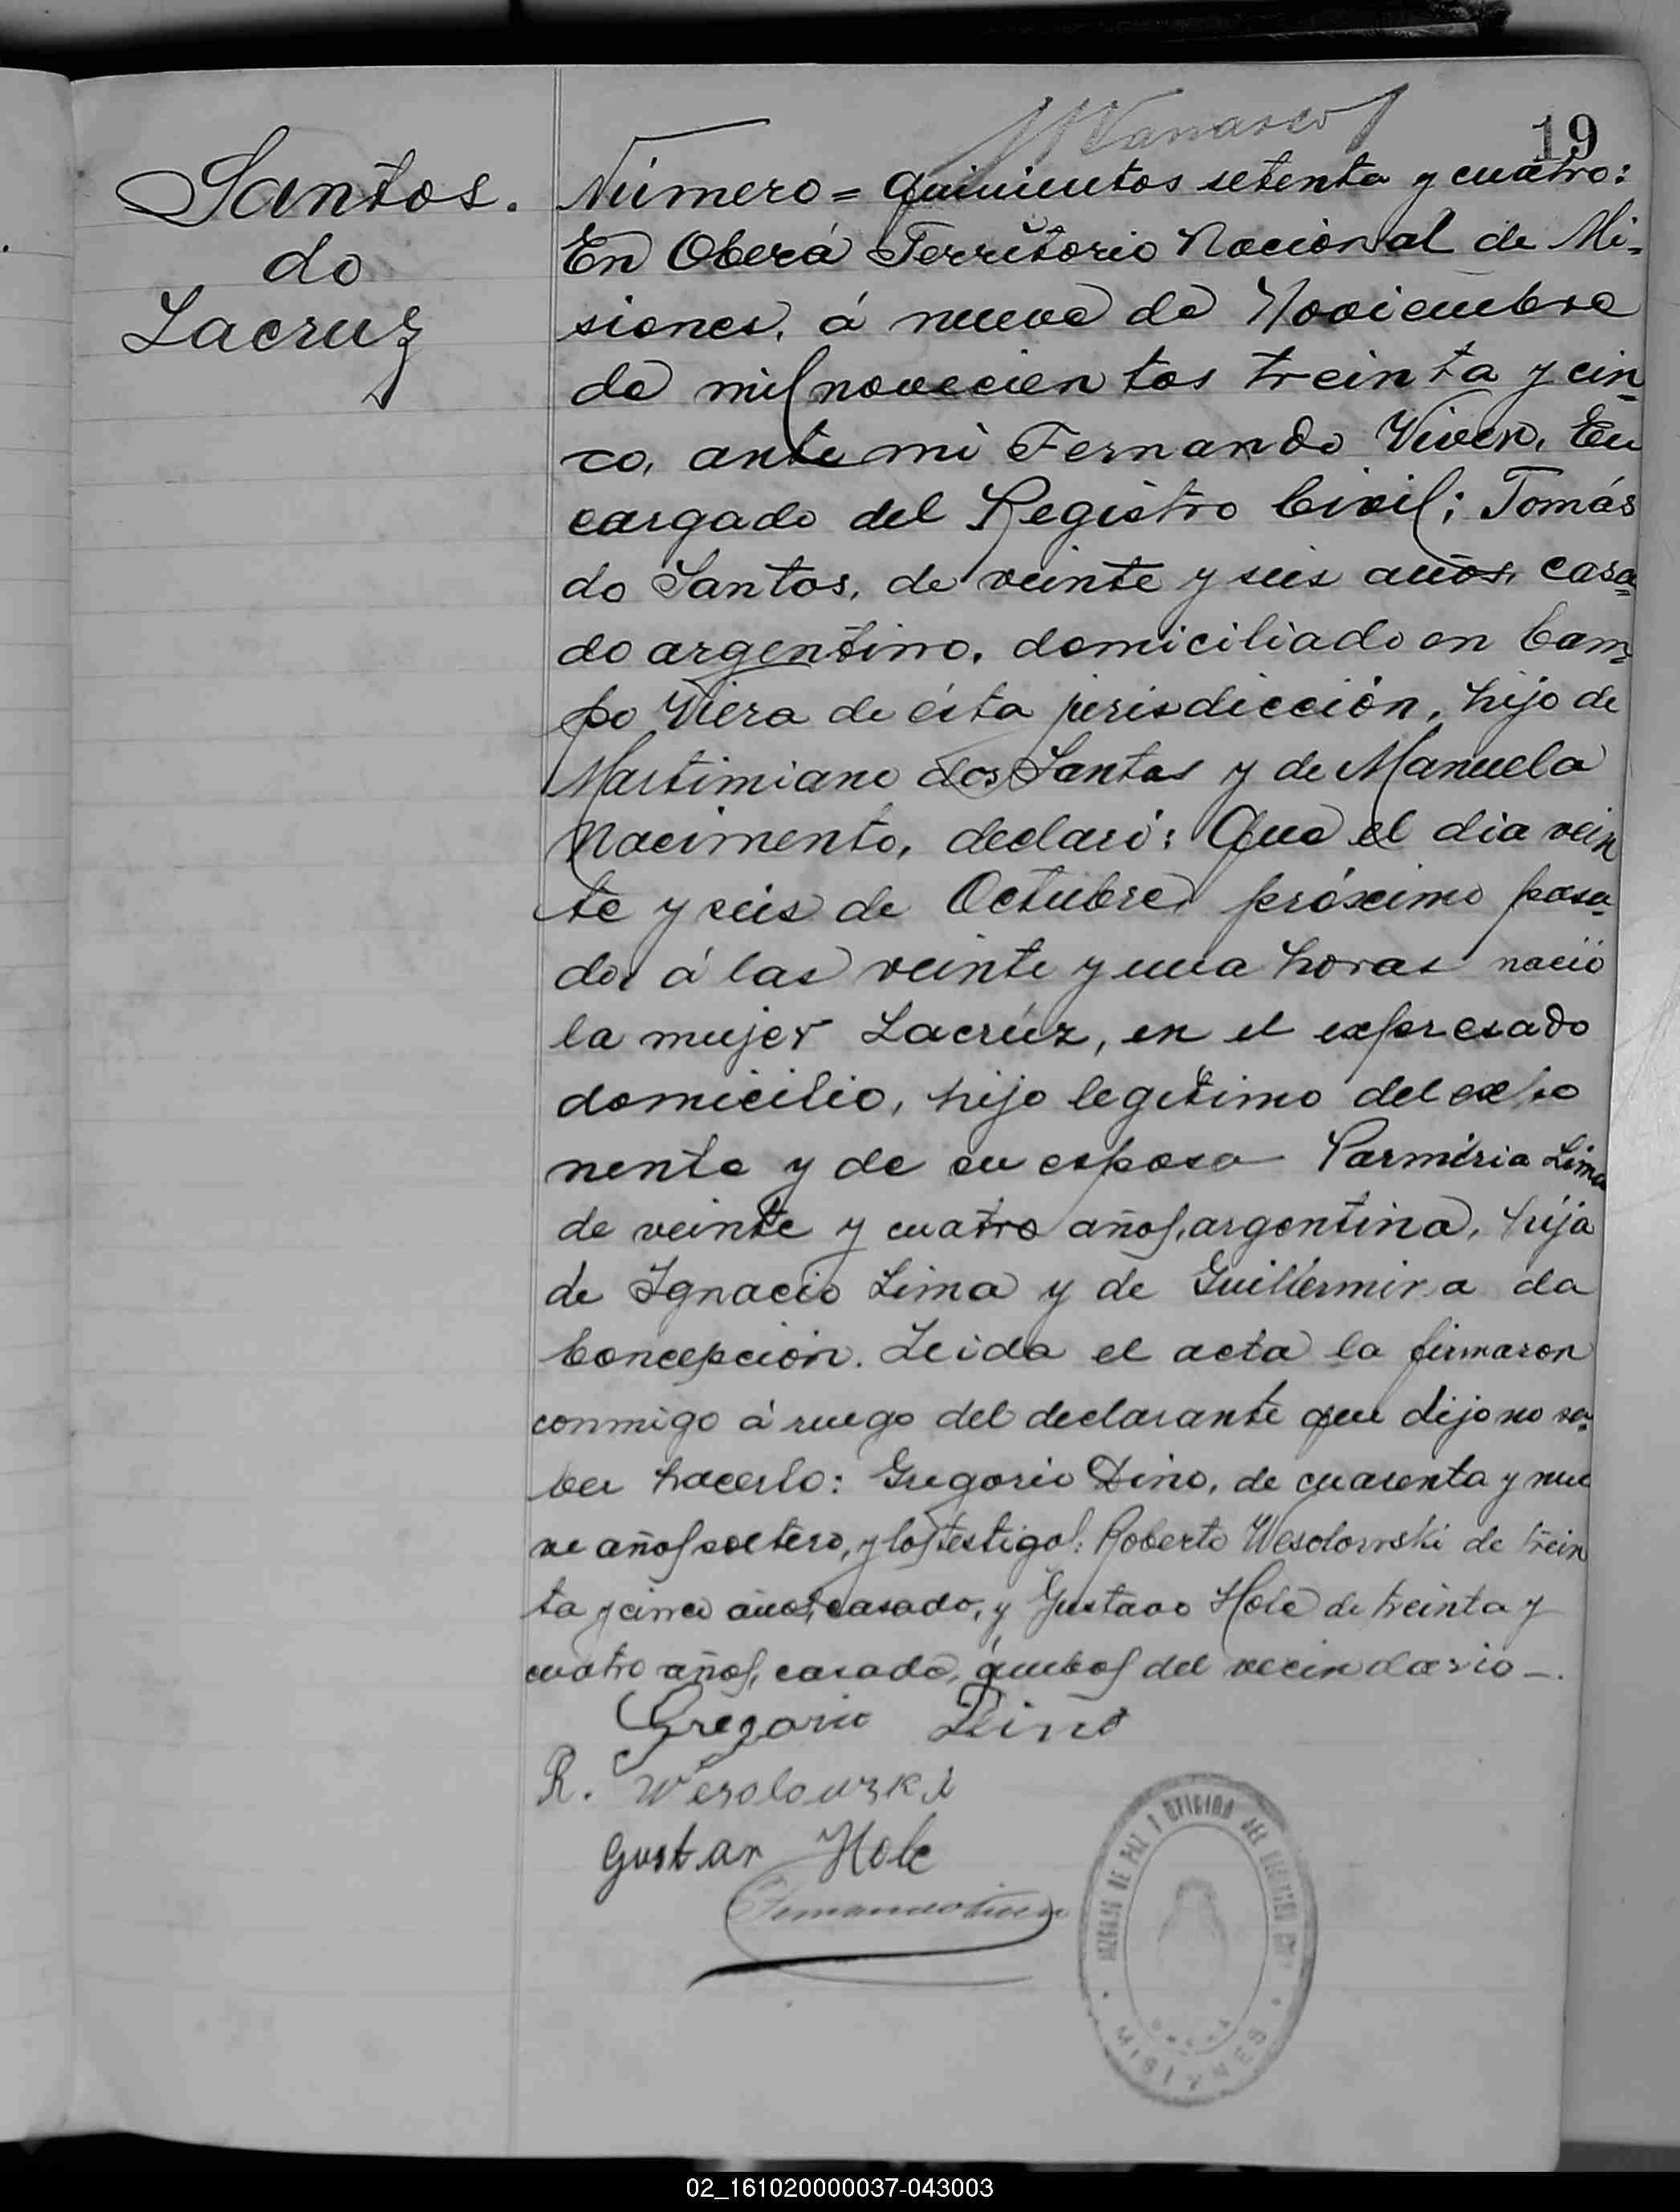 19
Santos.
do
Lacruz
Número = quinientos setenta y cuatro:
En Oberá Territorio Nacional de Mi-
siones, á nueve de Noviembre
de mil novecientos treinta y cin-
co, ante mi Fernando Viver, En
cargado del Registro Civil; Tomás
do Santos, de veinte y seis años, casa-
do argentino, domiciliado en Cam-
po Viera de ésta jurisdicción, hijo de
Martimiano dos Santos y de Manuela
Nacimento, declaró: Que el dia vein
te y seis de Octubre próximo pasa-
do, á las veinte y una horas nació
la mujer Lacrúz, en el expresado
domicilio, hijo legitimo del expo
nente y de su esposa Parmiria Lima
de veinte y cuatro años, argentina, hija
de Ignacio Lima y de Guillermina da
Concepción. Leida el acta la firmaron
conmigo á ruego del declarante que dijo no sa-
ber hacerlo: Gregorio Dino, de cuarenta y nue
ve años soltero, y los testigos: Roberto Wesolowski de trein
ta y cinco años, casado, y Gustavo Hole de treinta y
cuatro años, casado, ámbos del vecindario -.
Gregorio Dino
R. Wesolowski
Gustav Hole
JUZGADO DE PAZ Y OFICINA DEL REGISTRO CIVIL
MISIONES
02_161020000037-043003